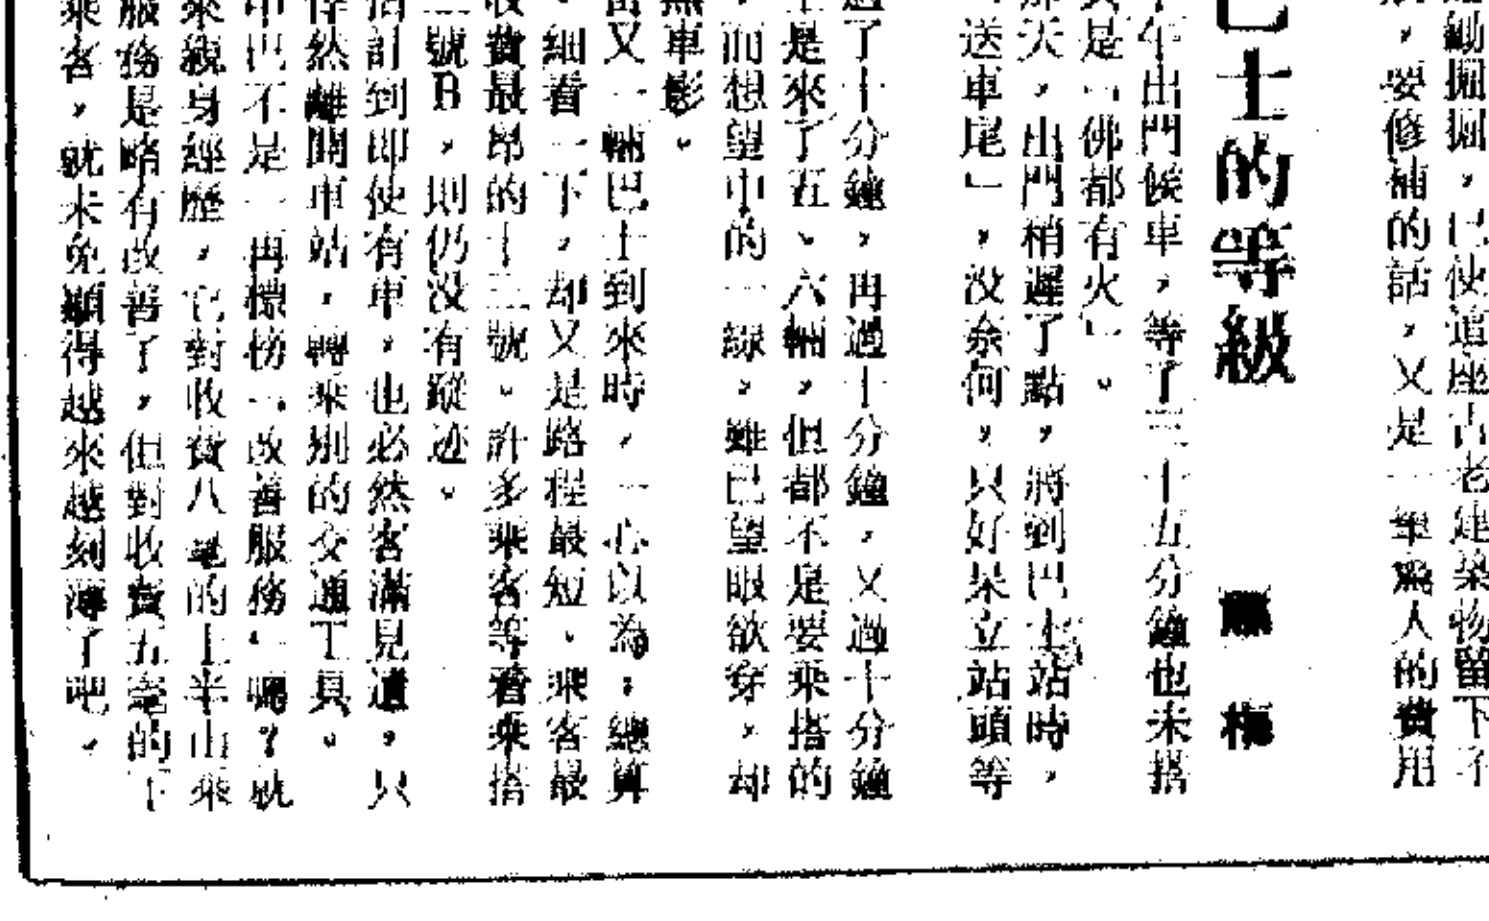 鋤掘掘，已使這座古老建築物留下不
，要修補的話，又是一筆為人的費用
巴士的等級
梅
午出門候車，等了三十五分鐘也未搭
是「佛都有火」。
那天，出門稍遲了點，將到巴士站時，
「送車尾」，没奈何，只好呆立站頭等
過了十分鐘，再過十分鐘，又過十分鐘
是來了五、六輛，但都不是要乘搭的
，而想望中的一線，雖已望眼欲穿，却
無車影。
當又一輛巴士到來時，一心以為，總算
，細看一下，却又是路程最短、乘客最
收費最昂的十三號。許多乘客等着乘搭
號B，則仍没有蹤迹。
估計到即使有車，也必然客滿見遺，只
悻然離開車站，轉乘別的交通工具。
中巴不是一再標榜「改善服務」嗎？就
來親身經歷，它對收費八毫的上半山乘
服務是略有改善了，但對收費五毫的下
乘客，就未免顯得越來越刻薄了吧。